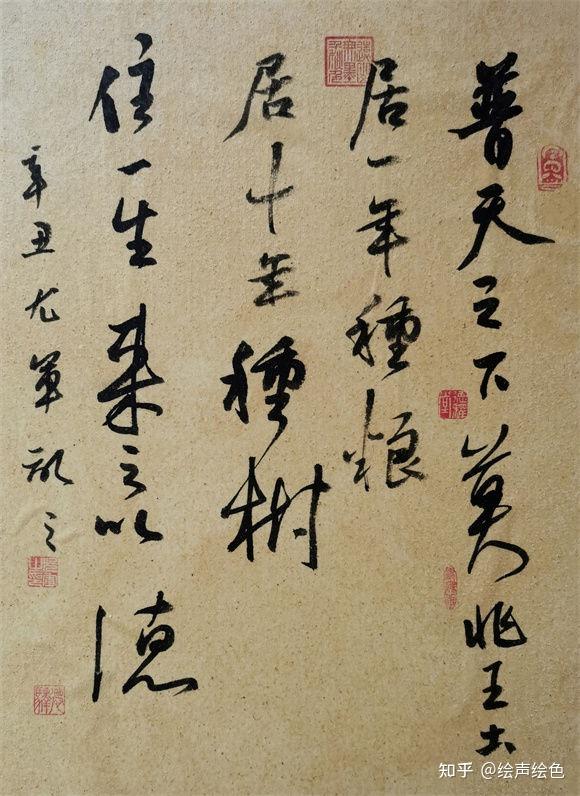 普天之下莫非王土
居一年種粮
居十年種樹
住一生来之以德
辛丑尤軍敬之
知乎 @绘声绘色